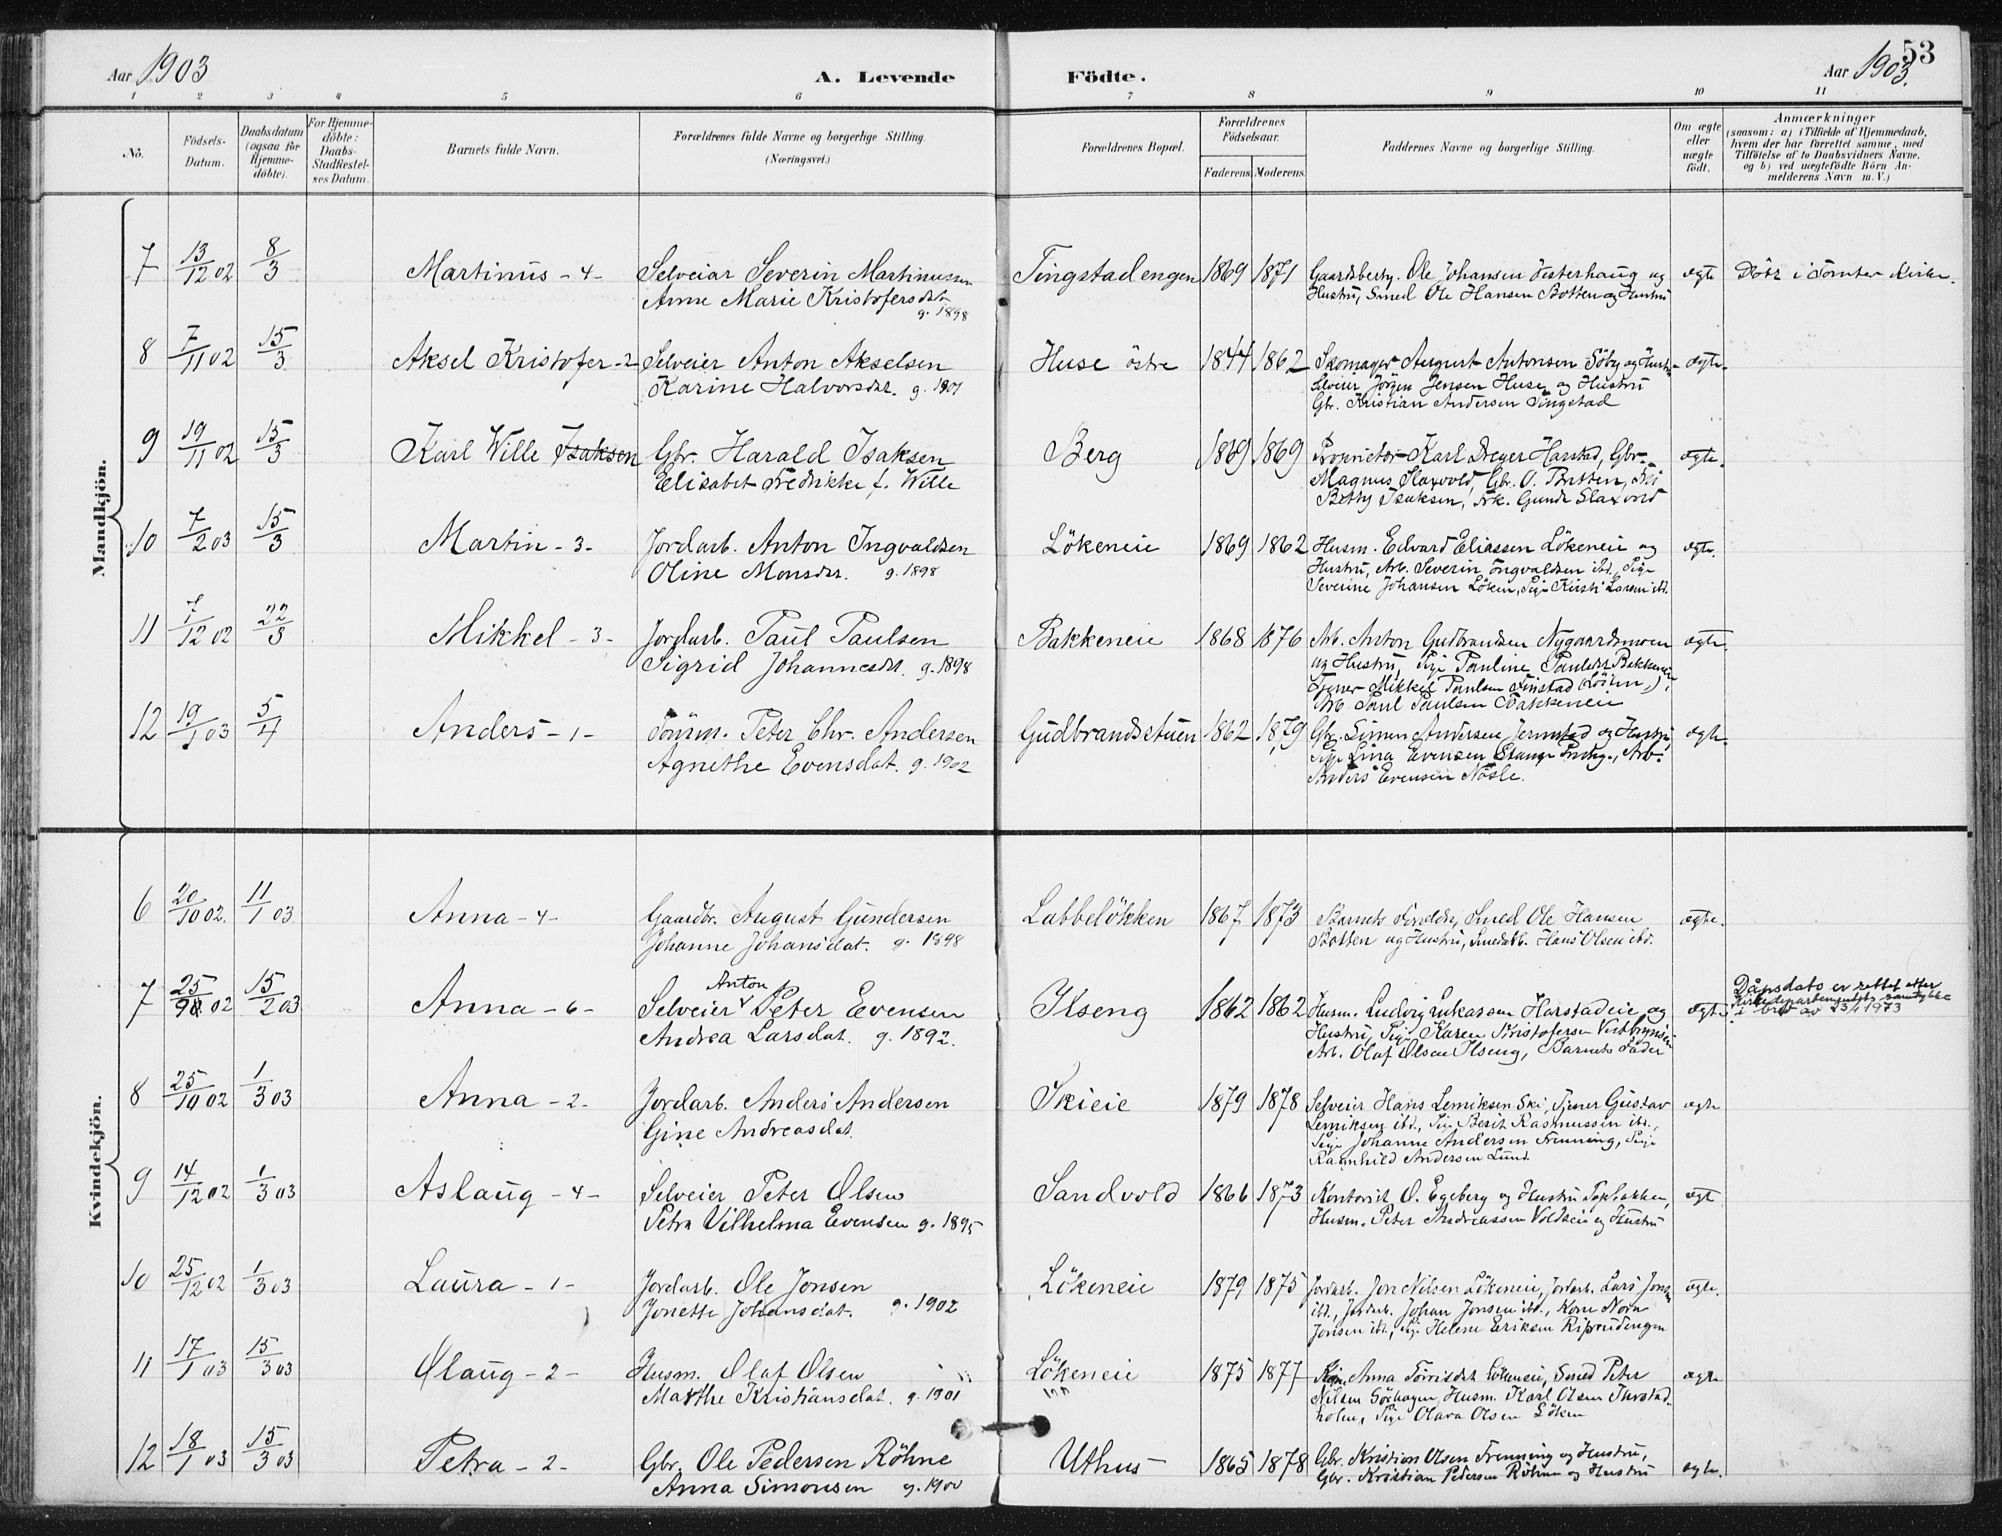 Aar 1903
A. Levende
Födte.
Aar 1903.
53
1 2 3 4 5 6 7 8 9 10 11
No.
Födsels-
Datum.
Daabsdatum
(ogsaa for
Hjemme-
döbte).
For Hjemme-
döbte:
Daabs-
Stadfestel-
ses Datum.
Barnets fulde Navn.
Forældrenes fulde Navne og borgerlige Stilling.
(Næringsvei.)
Forældrenes Bopæl.
Forældrenes
Födselsaar.
Faderens. Moderens.
Faddernes Navne og borgerlige Stilling.
Om ægte
eller
uægte
födt.
Anmærkninger
(saasom: a) i Tilfælde af Hjemmedaab,
hvem der har forrettet samme, med
Tilföielse af to Daabsvidners Navne,
og b) ved uægtefödte Börn An-
melderens Navn m. V.)
Mandkjön.
7 13/12 02 8/3 Martinus - 4 - Selveiar Severin Martinussen Tingstadengen 1869 1871 Gaardsberty. Ole Johansen Vesterhaug og ægte Döbt i Tomter Kirke.
Anne Marie Kristofersdat. Hustru, Smed Ole Hansen Botten og Hustru
g. 1898
8 7/11 02 15/3 Aksel Kristofer - 2 Selveier Anton Akselsen Huse östre 1844 1862 Skomager August Antonsen Söby og Hustru ægte.
Karine Halvorsdat. g. 1901 Selveier Jörgen Jensen Huse og Hustru
Gbr. Kristian Andersen Tingstad
9 19/11 02 15/3 Karl Wille Isaksen Gbr. Harald Isaksen Berg 1869 1869 Proprietær Karl Dreyer Harstad, Gbr. ægte.
Elisabet Fredrikke f. Wille Magnus Slaxvold, Gbr. O. Britten,
Betty Isaksen, Frk. Slaxvold
10 7/2 03 15/3 Martin - 3 - Jordarb. Anton Ingvaldsen Lökeneie 1869 1862 Husm. Edvard Eliassen Lökeneie og ægte.
Oline Monsdat. g. 1898 Hustru, Arb. Severin Ingvaldsen ibd., Pige
Severine Johansen Löken, Pige Kirsti Larsen ibd.
11 7/12 02 22/3 Mikkel - 3 - Jordarb. Paul Paulsen Bakkeneie 1868 1876 Arb. Anton Gudbrandsen Nygaardsmoen ægte
Sigrid Johannesdt. g. 1898 og Hustru, Pige Pauline Paulsdt Bakkeneie
Tjener Mikkel Paulsen Finstad (Löiten),
Arb. Paul Paulsen Bakkeneie
12 19/1 03 5/4 Anders - 1 - Tömm. Peter Chr. Andersen Gudbrandsstuen 1862 1879 Gbr. Simen Andersen Jernstad og Hustru, ægte.
Agnethe Evensdat. g. 1902 Pige Lina Evensen Stange Prstg., Arb.
Anders Evensen Nösle.
Kvindekjön.
6 20/10 02. 11/1 03. Anna - 4 - Gaardbr. August Gundersen Labbelökken 1867 1873 Barnets Forældre, Smed Ole Hansen ægte.
Johanne Johansdat. g. 1898 Botten og Hustru, Smedarb. Hans Olsen ibd.
7 25/9 02 15/2 03 Anna - 6 - Selveier Anton Peter Evensen Ilseng 1862 1862 Husm. Ludvig Lukassen Harstadeie og ægte Dåpsdato er rettet etter
Andrea Larsdat. g. 1892. Hustru, Pige Karen Kristofersen Vestbynseie Kirkedepartementets samtykke
Arb. Olaf Olsen Ilseng, Barnets Fader i brev av 13/4 1973
8 25/10 02 1/3 03 Anna - 2 - Jordarb. Anders Andersen Skieie 1879 1878 Selveier Hans Lemiksen Ski, Tjener Gustav ægte
Gine Andreasdat. Lemiksen ibd., Pige Berit Rasmussen ibd.,
Pige Johanne Andersen Frenning, Pige
Ragnhild Andersen Lund.
9 14/12 02 1/3 03 Aslaug - 4 - Selveier Peter Olsen Sandvold 1866 1873 Kontorist O. Egeberg og Hustru, ægt
Petra Vilhelma Evensen g. 1895 Husm. Peter Andreassen Voldseie og Hustru
10 25/12 02 1/3 03 Laura - 1 - Jordarb. Ole Jonsen Lökeneie 1879 1875 Jordarb. Jon Nilsen Lökeneie, Jordarb. Lars Jonsen ægte.
Jonette Johansdat. g. 1902 ibd., Jordarb. Johan Jonsen ibd., Kone Nora
Jonsen ibd., Pige Helene Eriksen Ripsrudengen
11 17/1 03 15/3 03 Olaug - 2 - Husm. Olaf Olsen Lökeneie 1875 1877 Pige Anna Lökeneie, Smed Peter ægte
Marthe Kristiansdat. g. 1901 Nilsen Sörhagen, Husm. Karl Olsen Thorstad-
holm, Pige Olava Olsen Löken
12 18/1 03 15/3 03 Petra - 2 - Gbr. Ole Pedersen Röhne Uthus 1865 1878 Gbr. Kristian Olsen Frenning og Hustru, ægte.
Anna Simonsen g. 1900 Gbr. Kristian Pedersen Röhne og Hustru